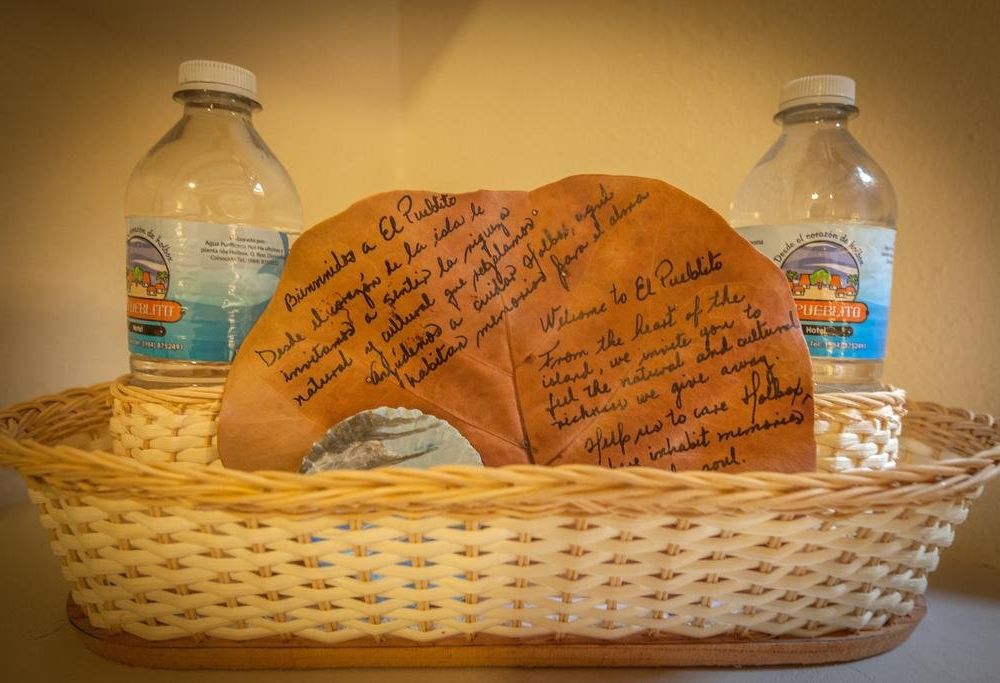 Bienvenidos a El Pueblito
Desde el corazón de la isla le
invitamos a sentir la riqueza
natural y cultural que regalamos.
Ayúdenos a cuidar Holbox, aquí
habitan memorias para el alma
Welcome to El Pueblito
From the heart of the
island, we invite you to
feel the natural and cultural
richness we give away.
Help us to care Holbox,
inhabit memories
soul.
corazón de holbox
PUEBLITO
Hotel
Tel: (984) 8752491
Agua Purificada
planta Isla Holbox, Q. Roo
Conocido Tel. (984)
Desde el corazón de holbox
PUEBLITO
Hotel
Tel: (984) 8752491